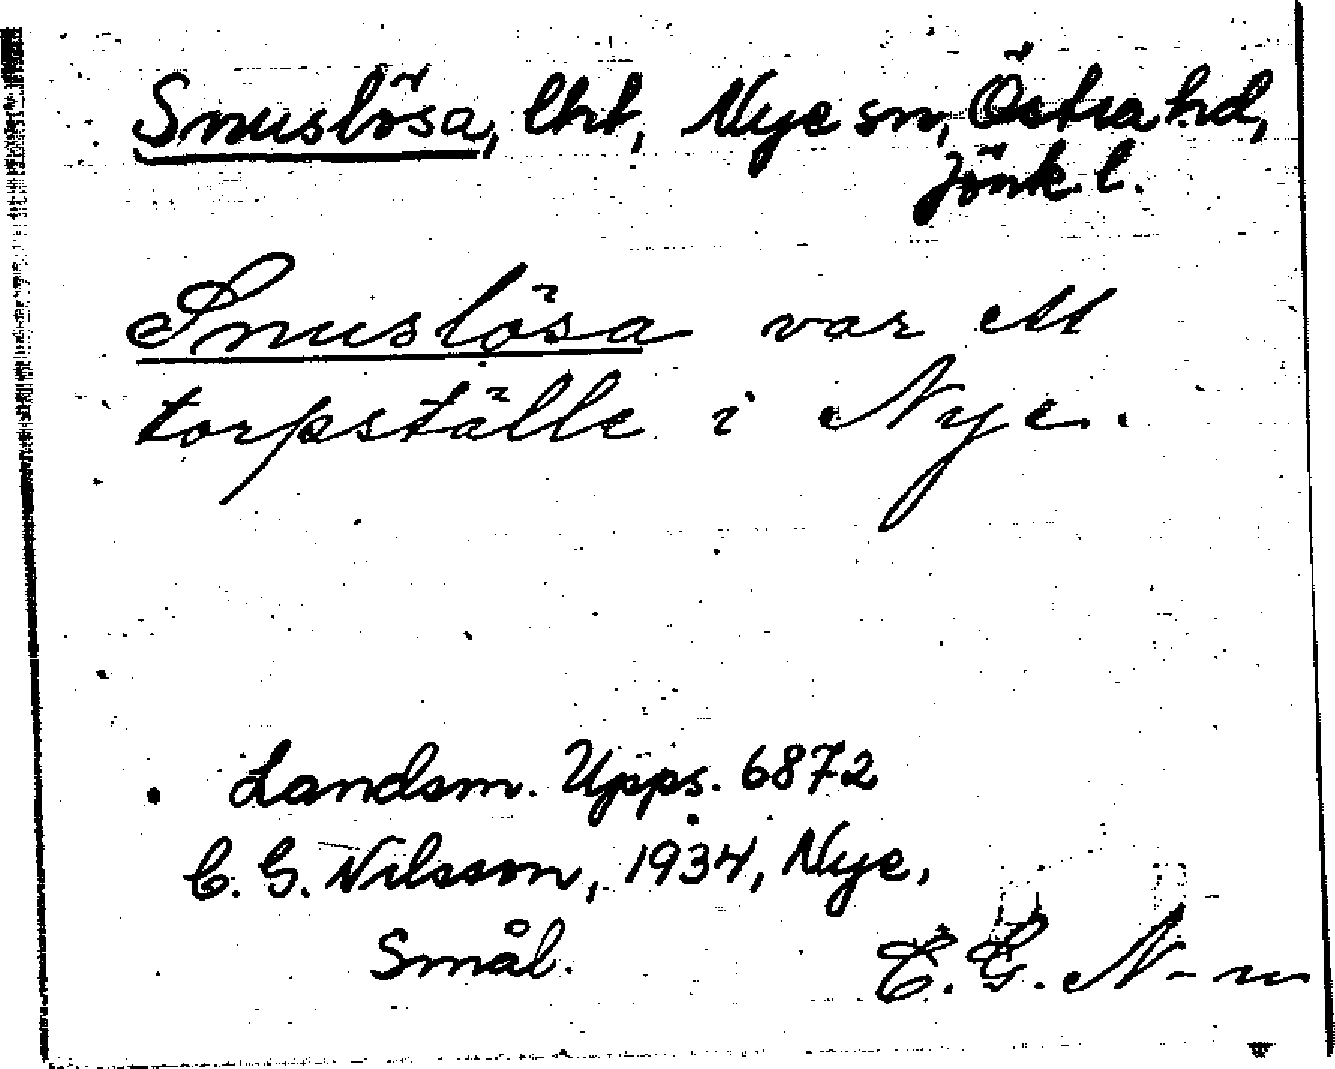 Snuslösa, lht, Nye sn, Östra hd,
Jönk. l.
Snuslösa var ett
torpställe i Nye.
Landsm. Upps. 6872
C. G. Nilsson, 1934, Nye,
Smål.
C. G. N-n